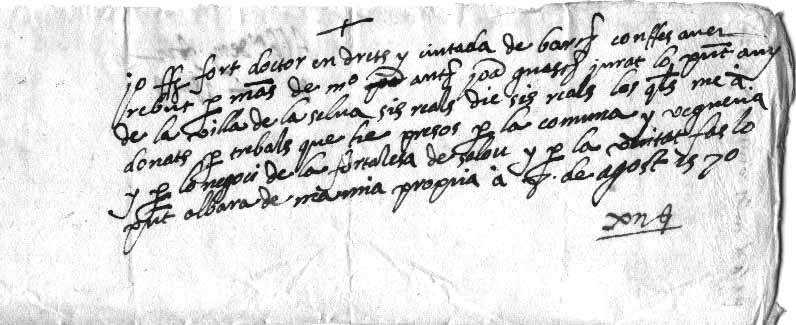 jo ff fort doctor en drets y ciutada de barc confes aver
rebut p mãs de mº antº joã jurat lo pnt any
de la villa de la selva sis reals dic sis reals los qls me ã
donats p trebals que he presos p la comuna y vegueria
y p lo negoci de la fortalesa de salou y p la veritat fas lo
pnt albara de mã mia propria a de agost 1570